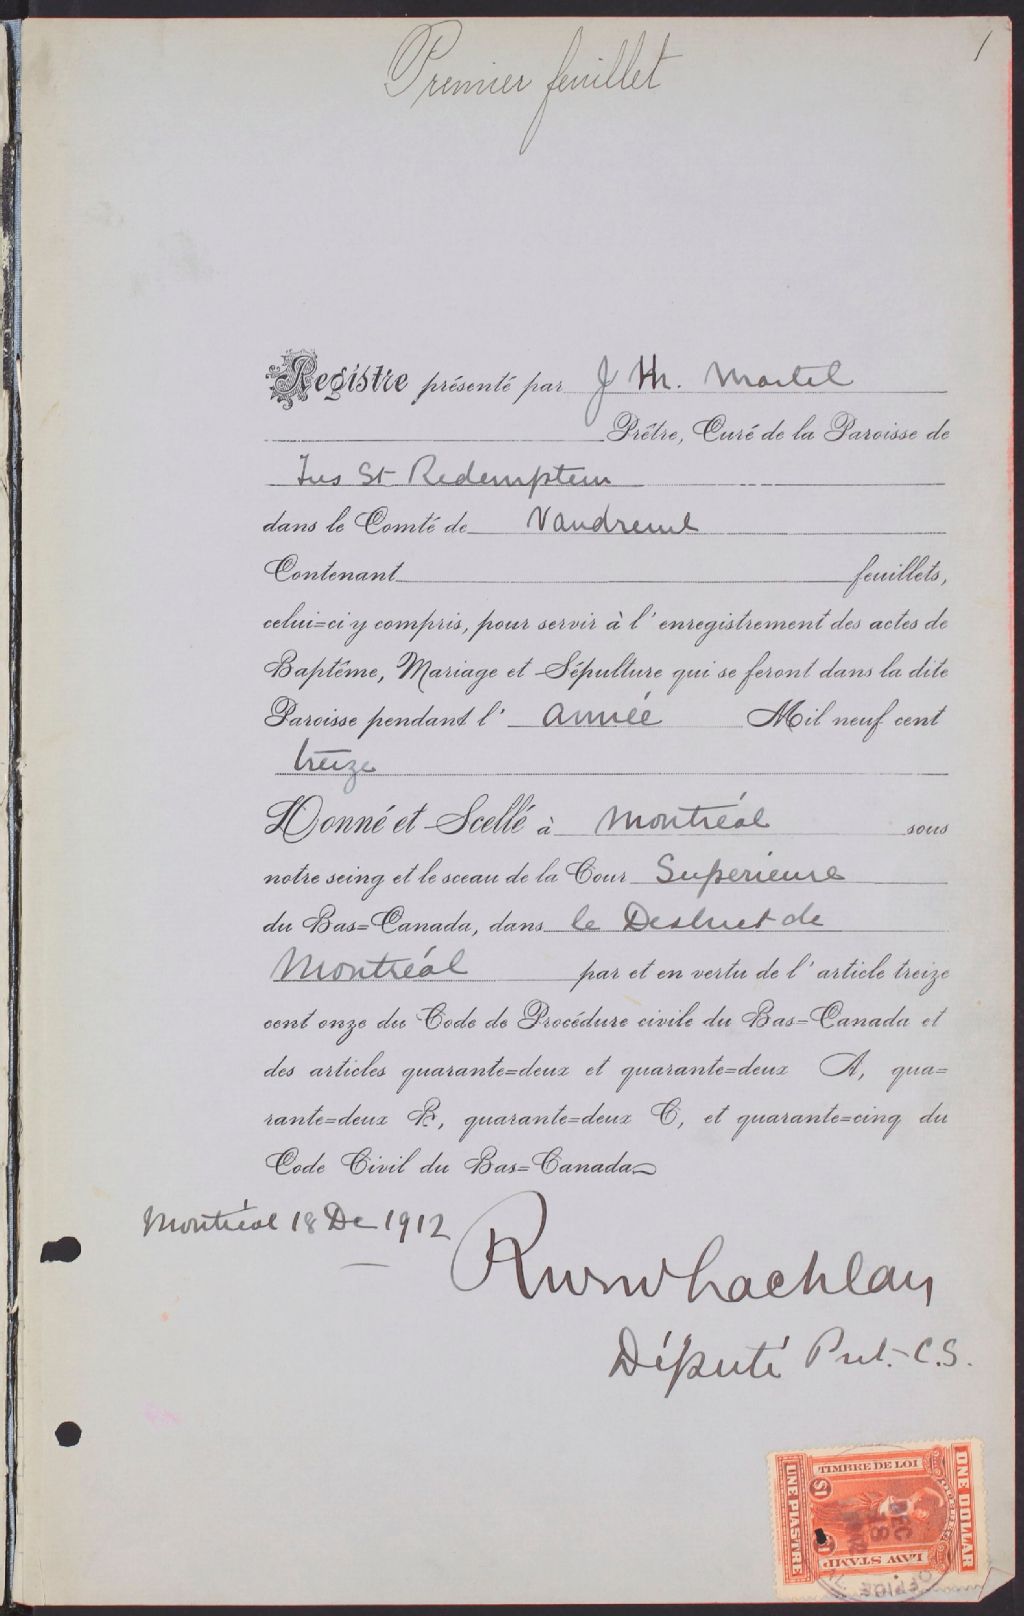 Premier feuillet
1
Registre présenté par J Th. Martel
Prêtre, Curé de la Paroisse de
St Redempteur
dans le Comté de Vaudreuil
Contenant feuillets,
celui=ci y compris, pour servir à l'enregistrement des actes de
Baptême, Mariage et Sépulture qui se feront dans la dite
Paroisse pendant l' année Mil neuf cent
treize
Donné et Scellé à Montréal sous
notre seing et le sceau de la Cour Superieure
du Bas=Canada, dans le District de
Montréal par et en vertu de l'article treize
cent onze du Code de Procédure civile du Bas=Canada et
des articles quarante=deux et quarante=deux A, qua=
rante=deux B, quarante=deux C, et quarante=cinq du
Code Civil du Bas=Canada
Montréal 18 De 1912
Député Prot. C.S.
TIMBRE DE LOI
ONE DOLLAR
UNE PIASTRE
$1
LAW STAMP
DEC
18
1912
OFFICE